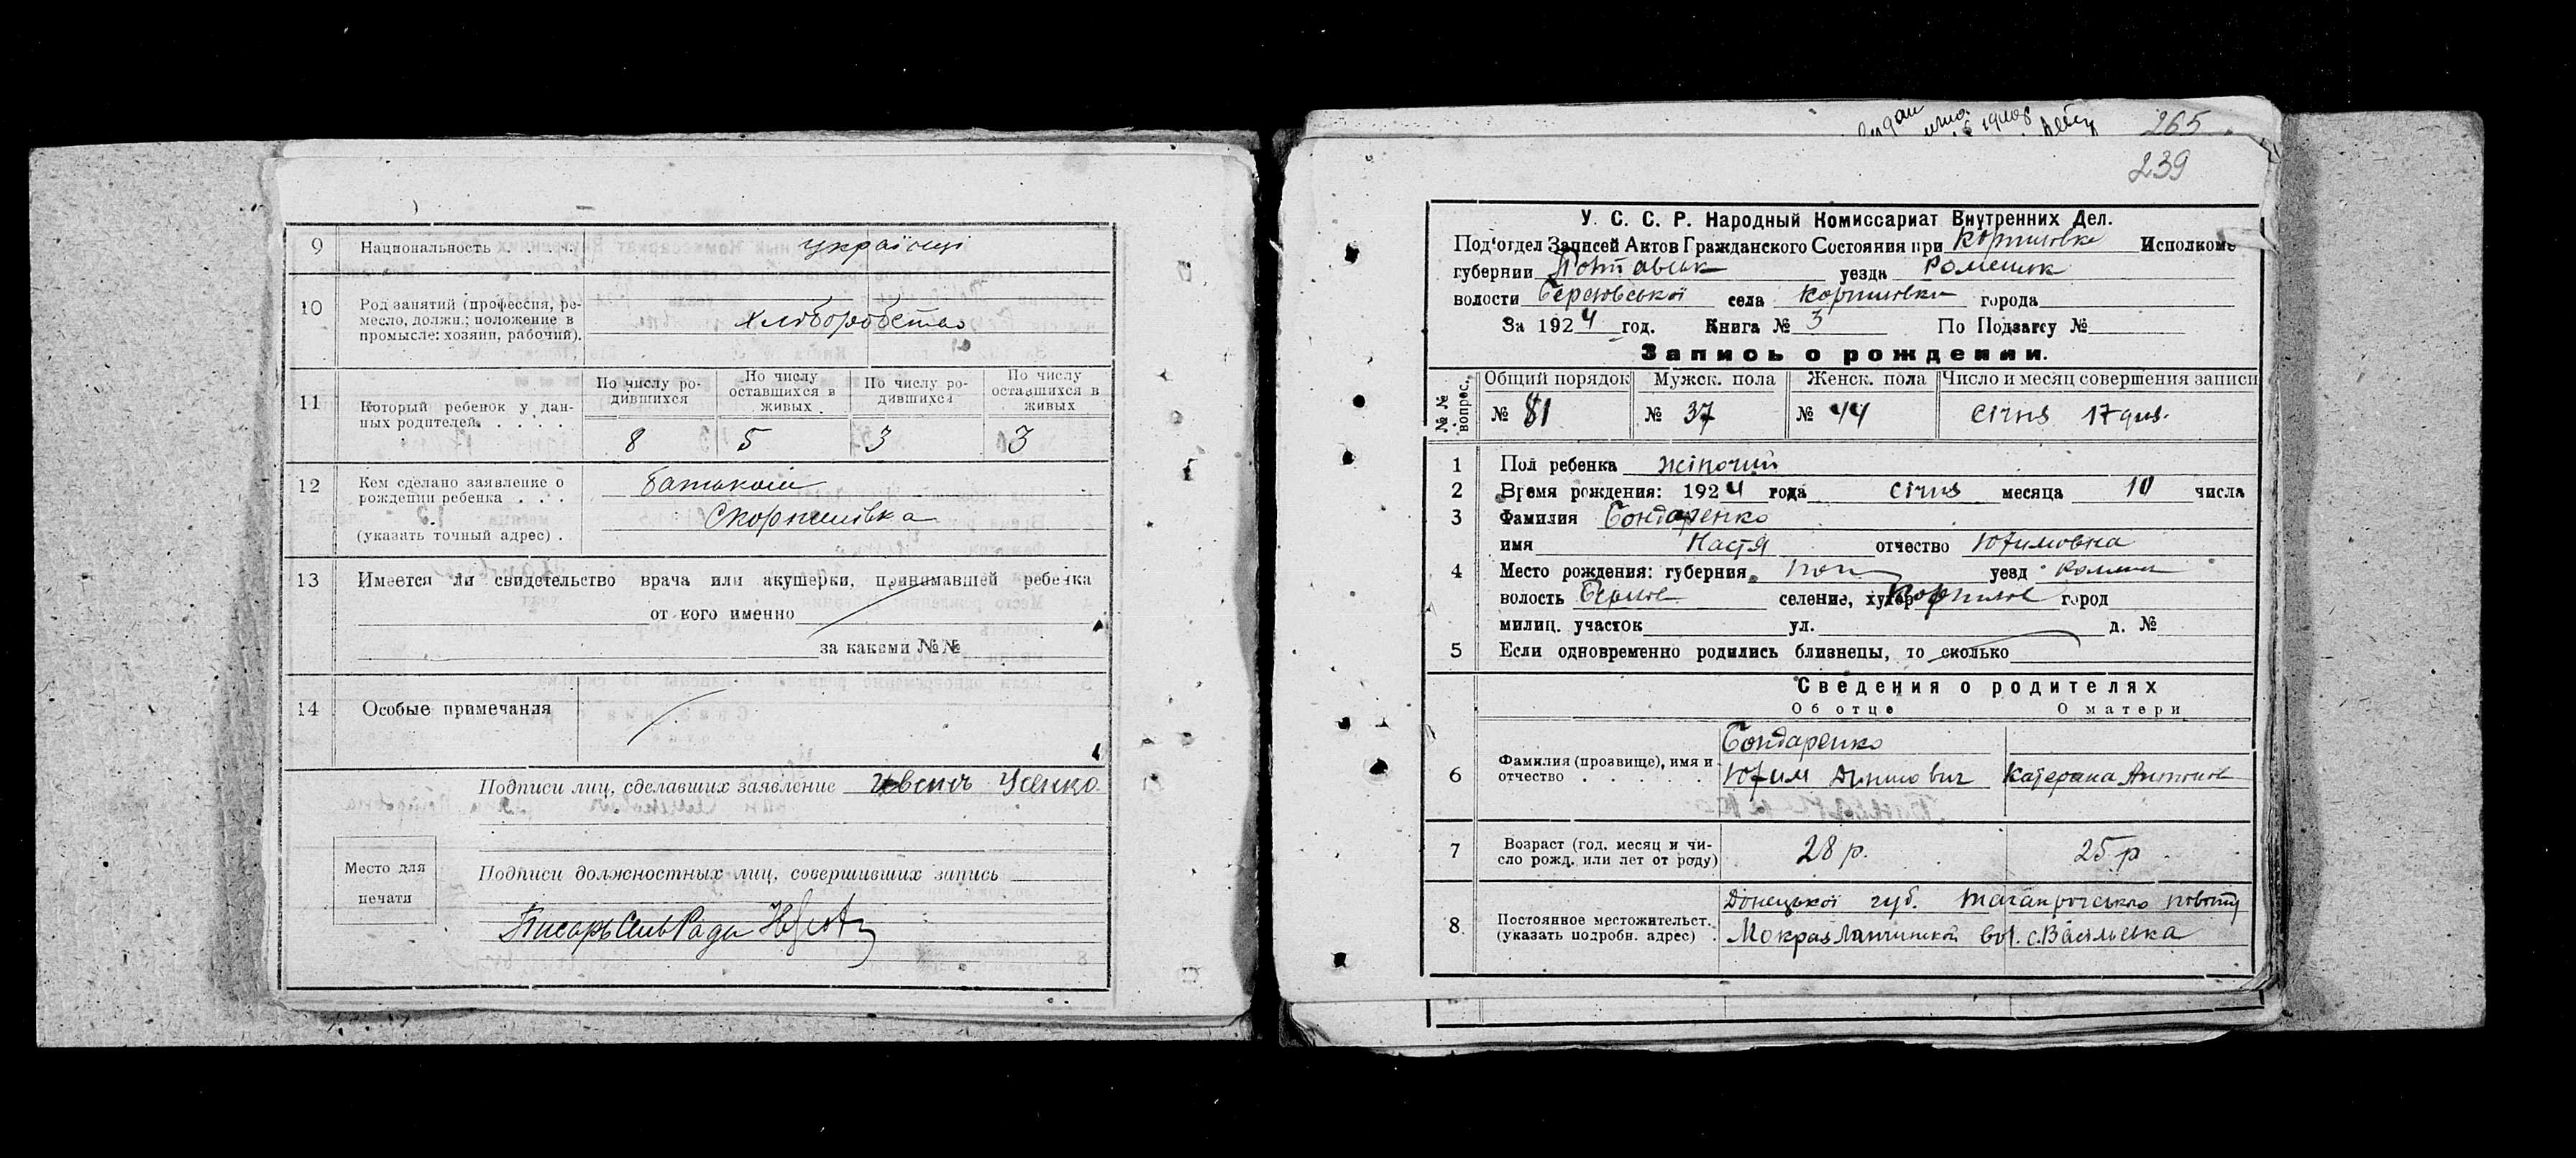 9 Национальность українці
10 Род занятий (профессия, ре-
месло, должн.; положение в
промысле: хозяин, рабочий).
хліборобство
11 Который ребенок у дан-
ных родителей
По числу ро-
дившихся
По числу
оставшихся в
живых
По числу ро-
дившихся
По числу
оставшихся в
живых
8 5 3 3
12 Кем сделано заявление о
рождении ребенка
(указать точный адрес)
батьком
с Коршилівка
13 Имеется ли свидетельство врача или акушерки, принимавшей ребенка
от кого именно
за какими №№
14 Особые примечания
Подписи лиц, сделавших заявление Усенко
Место для
печати
Подписи должностных лиц, совершивших запись
Писарь СільРади
265
239
У. С. С. Р. Народный Комиссариат Внутренних Дел.
Под'отдел Записей Актов Гражданского Состояния при Исполкоме
губернии Полтавськ уезда Роменськ
волости села города
За 1924 год. Книга № 3 По Подзагсу №
Запись о рождении.
№№ вопрос.
Общий порядок Мужск. пола Женск. пола Число и месяц совершения записи
№ 81 № 37 № 44 січня 17 дня.
1 Пол ребенка жіночий
2 Время рождения: 1924 года січня месяца 10 числа
3 Фамилия Бондаренко
имя Настя отчество Юхимовна
4 Место рождения: губерния Пол уезд Ромен
волость селение, хутор город
милиц. участок ул. д. №
5 Если одновременно родились близнецы, то сколько
Сведения о родителях
Об отце О матери
6 Фамилия (прозвище), имя и
отчество
Бондаренко
Юхим Катерина Антонов
7 Возраст (год, месяц и чи-
сло рожд. или лет от роду)
28 р. 25 р.
8 Постоянное местожительст.
(указать подробн. адрес)
Донецької губ. Таганрочського повіту
вол. с. Василівка